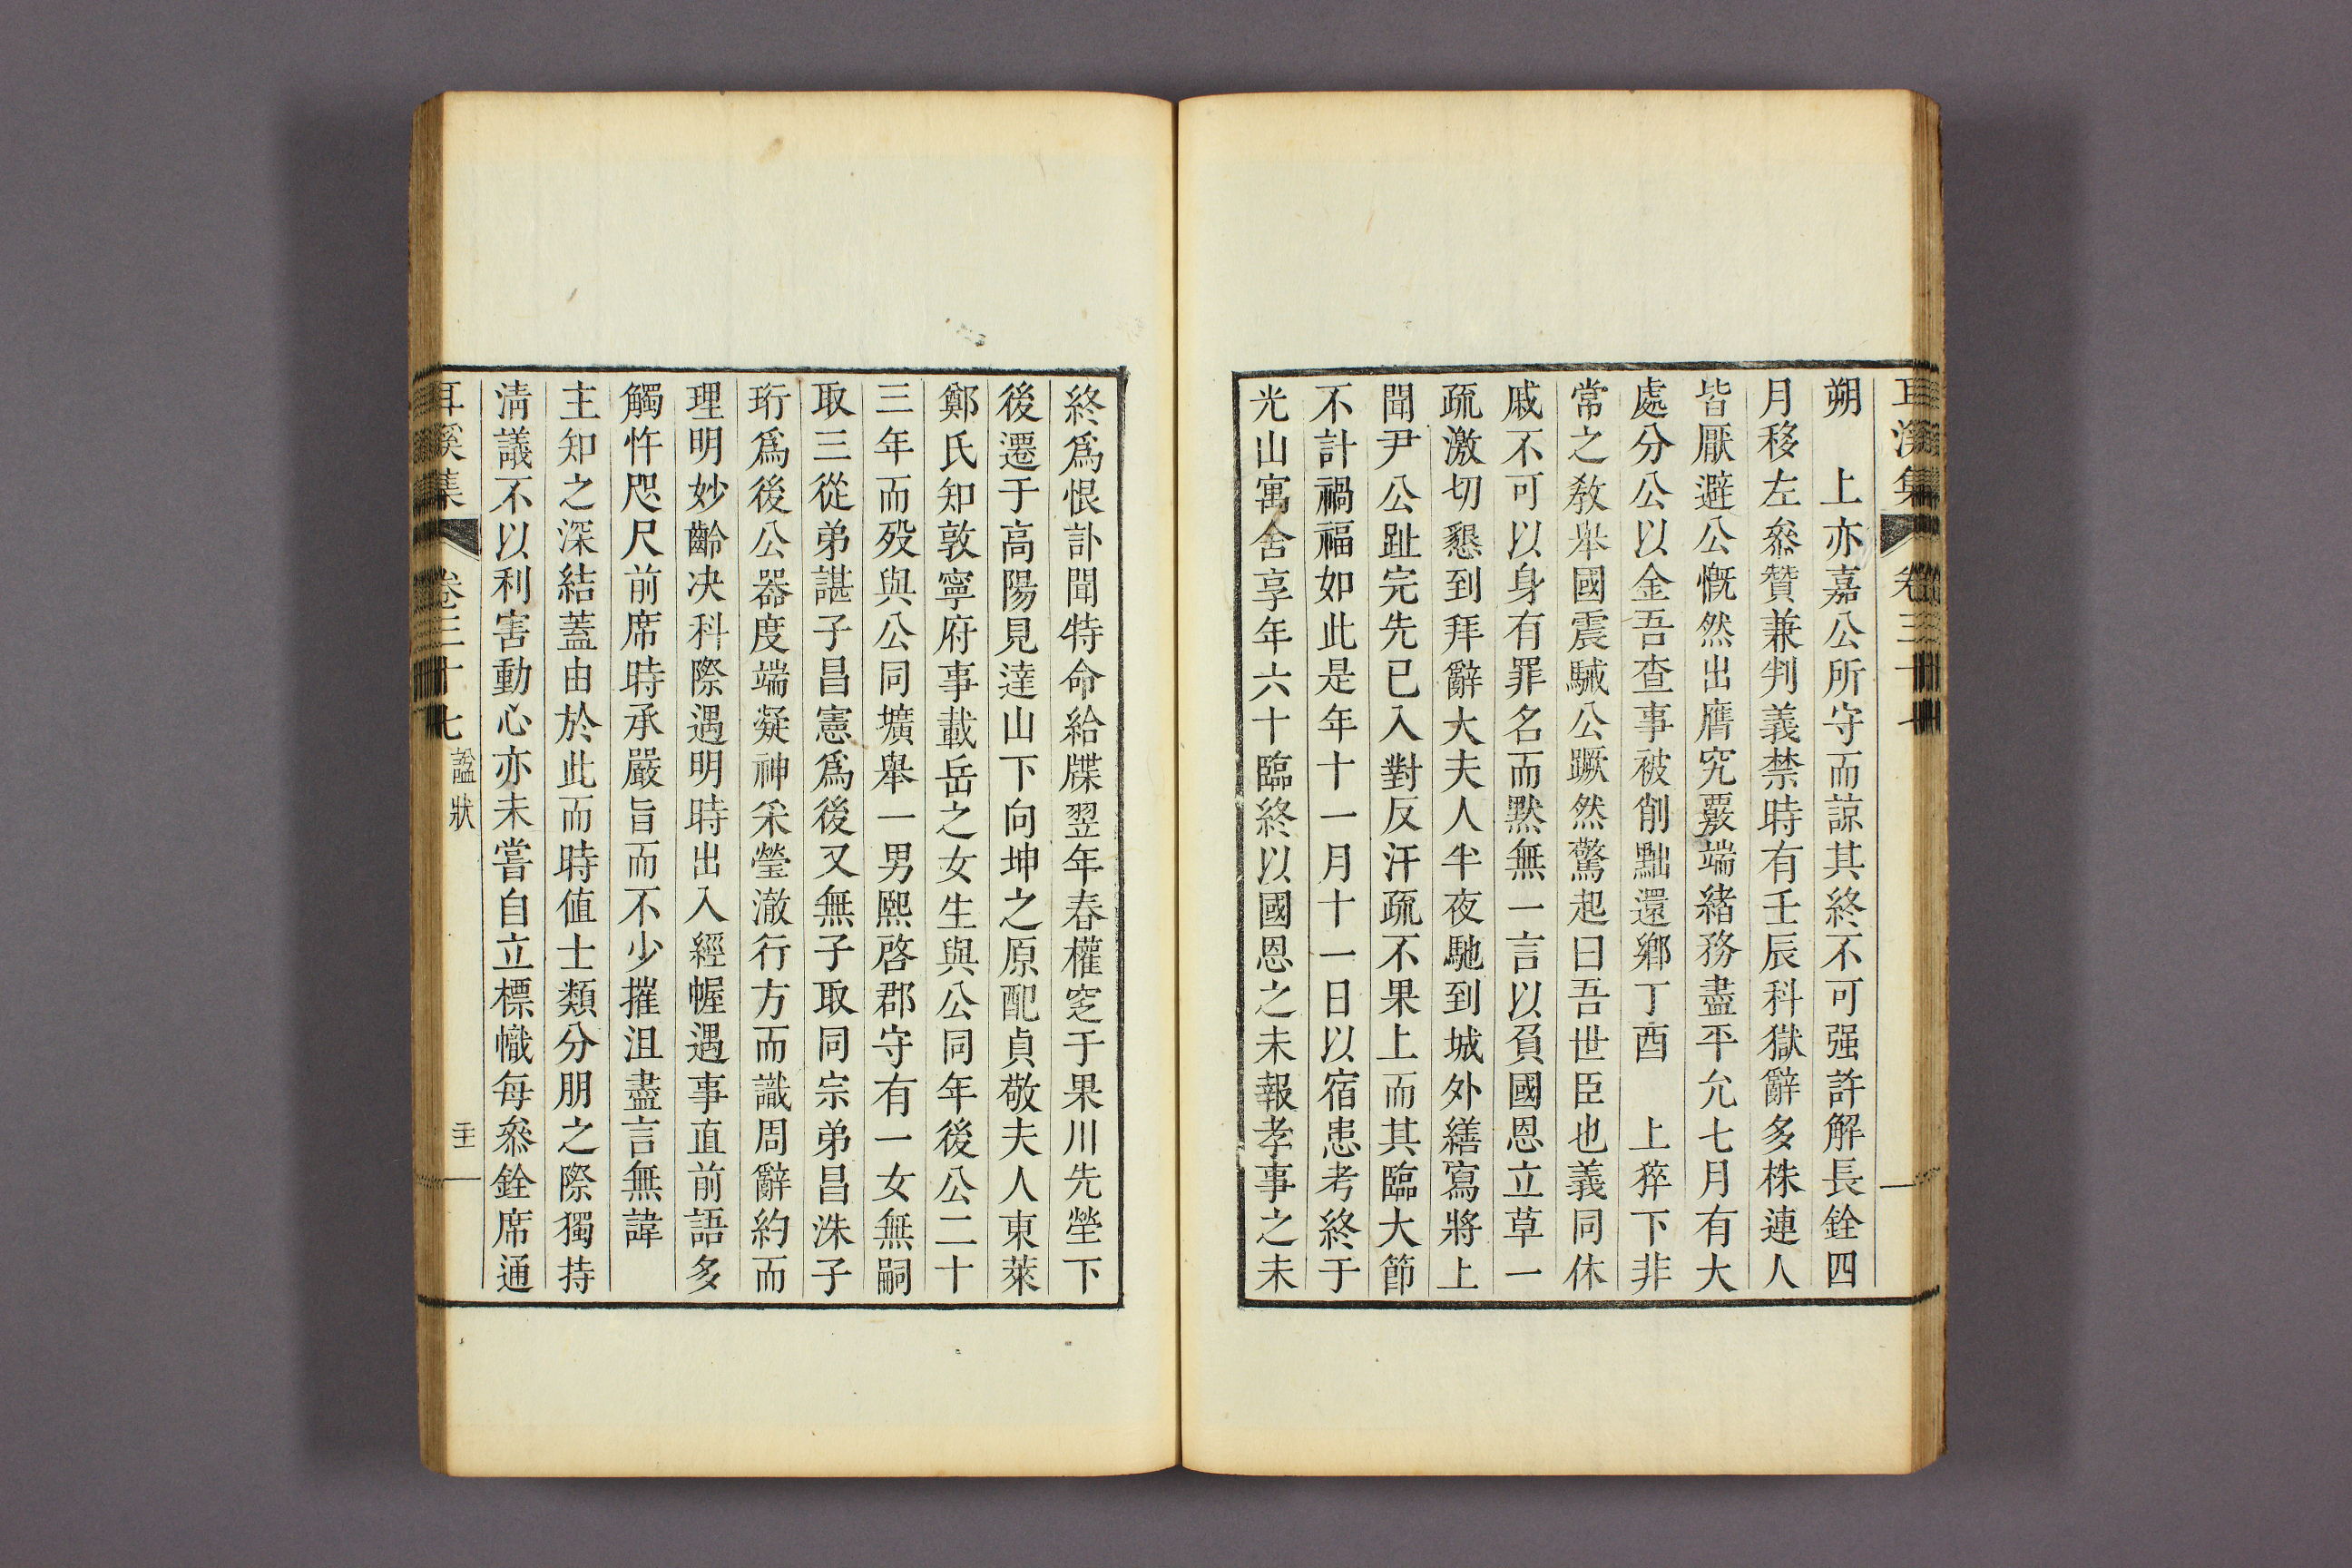 耳溪集 卷三十七
朔 上亦嘉公所守而諒其終不可强許解長銓四
月移左叅贊兼判義禁時有壬辰科獄辭多株連人
皆厭避公慨然出膺究覈端緖務盡平允七月有大
處分公以金吾查事被削黜還鄕丁酉 上猝下非
常之敎舉國震駴公蹶然驚起曰吾世臣也義同休
戚不可以身有罪名而默無一言以負國恩立草一
疏激切懇到拜辭大夫人半夜馳到城外繕寫將上
聞尹公趾完先已入對反汗疏不果上而其臨大節
不計禍福如此是年十一月十一日以宿患考終于
光山寓舍享年六十臨終以國恩之未報孝事之未
終爲恨訃聞特命給牒翌年春權窆于果川先塋下
後遷于高陽見達山下向坤之原配貞敬夫人東萊
鄭氏知敦寧府事載岳之女生與公同年後公二十
三年而歿與公同壙舉一男熈啓郡守有一女無嗣
取三從弟諶子昌憲爲後又無子取同宗弟昌洙子
珩爲後公器度端凝神采瑩澈行方而識周辭約而
理明妙齡决科際遇明時出入經幄遇事直前語多
觸忤咫尺前席時承嚴旨而不少摧沮盡言無諱
主知之深結蓋由於此而時値士類分朋之際獨持
淸議不以利害動心亦未嘗自立標幟每叅銓席通
耳溪集 卷三十七 諡狀